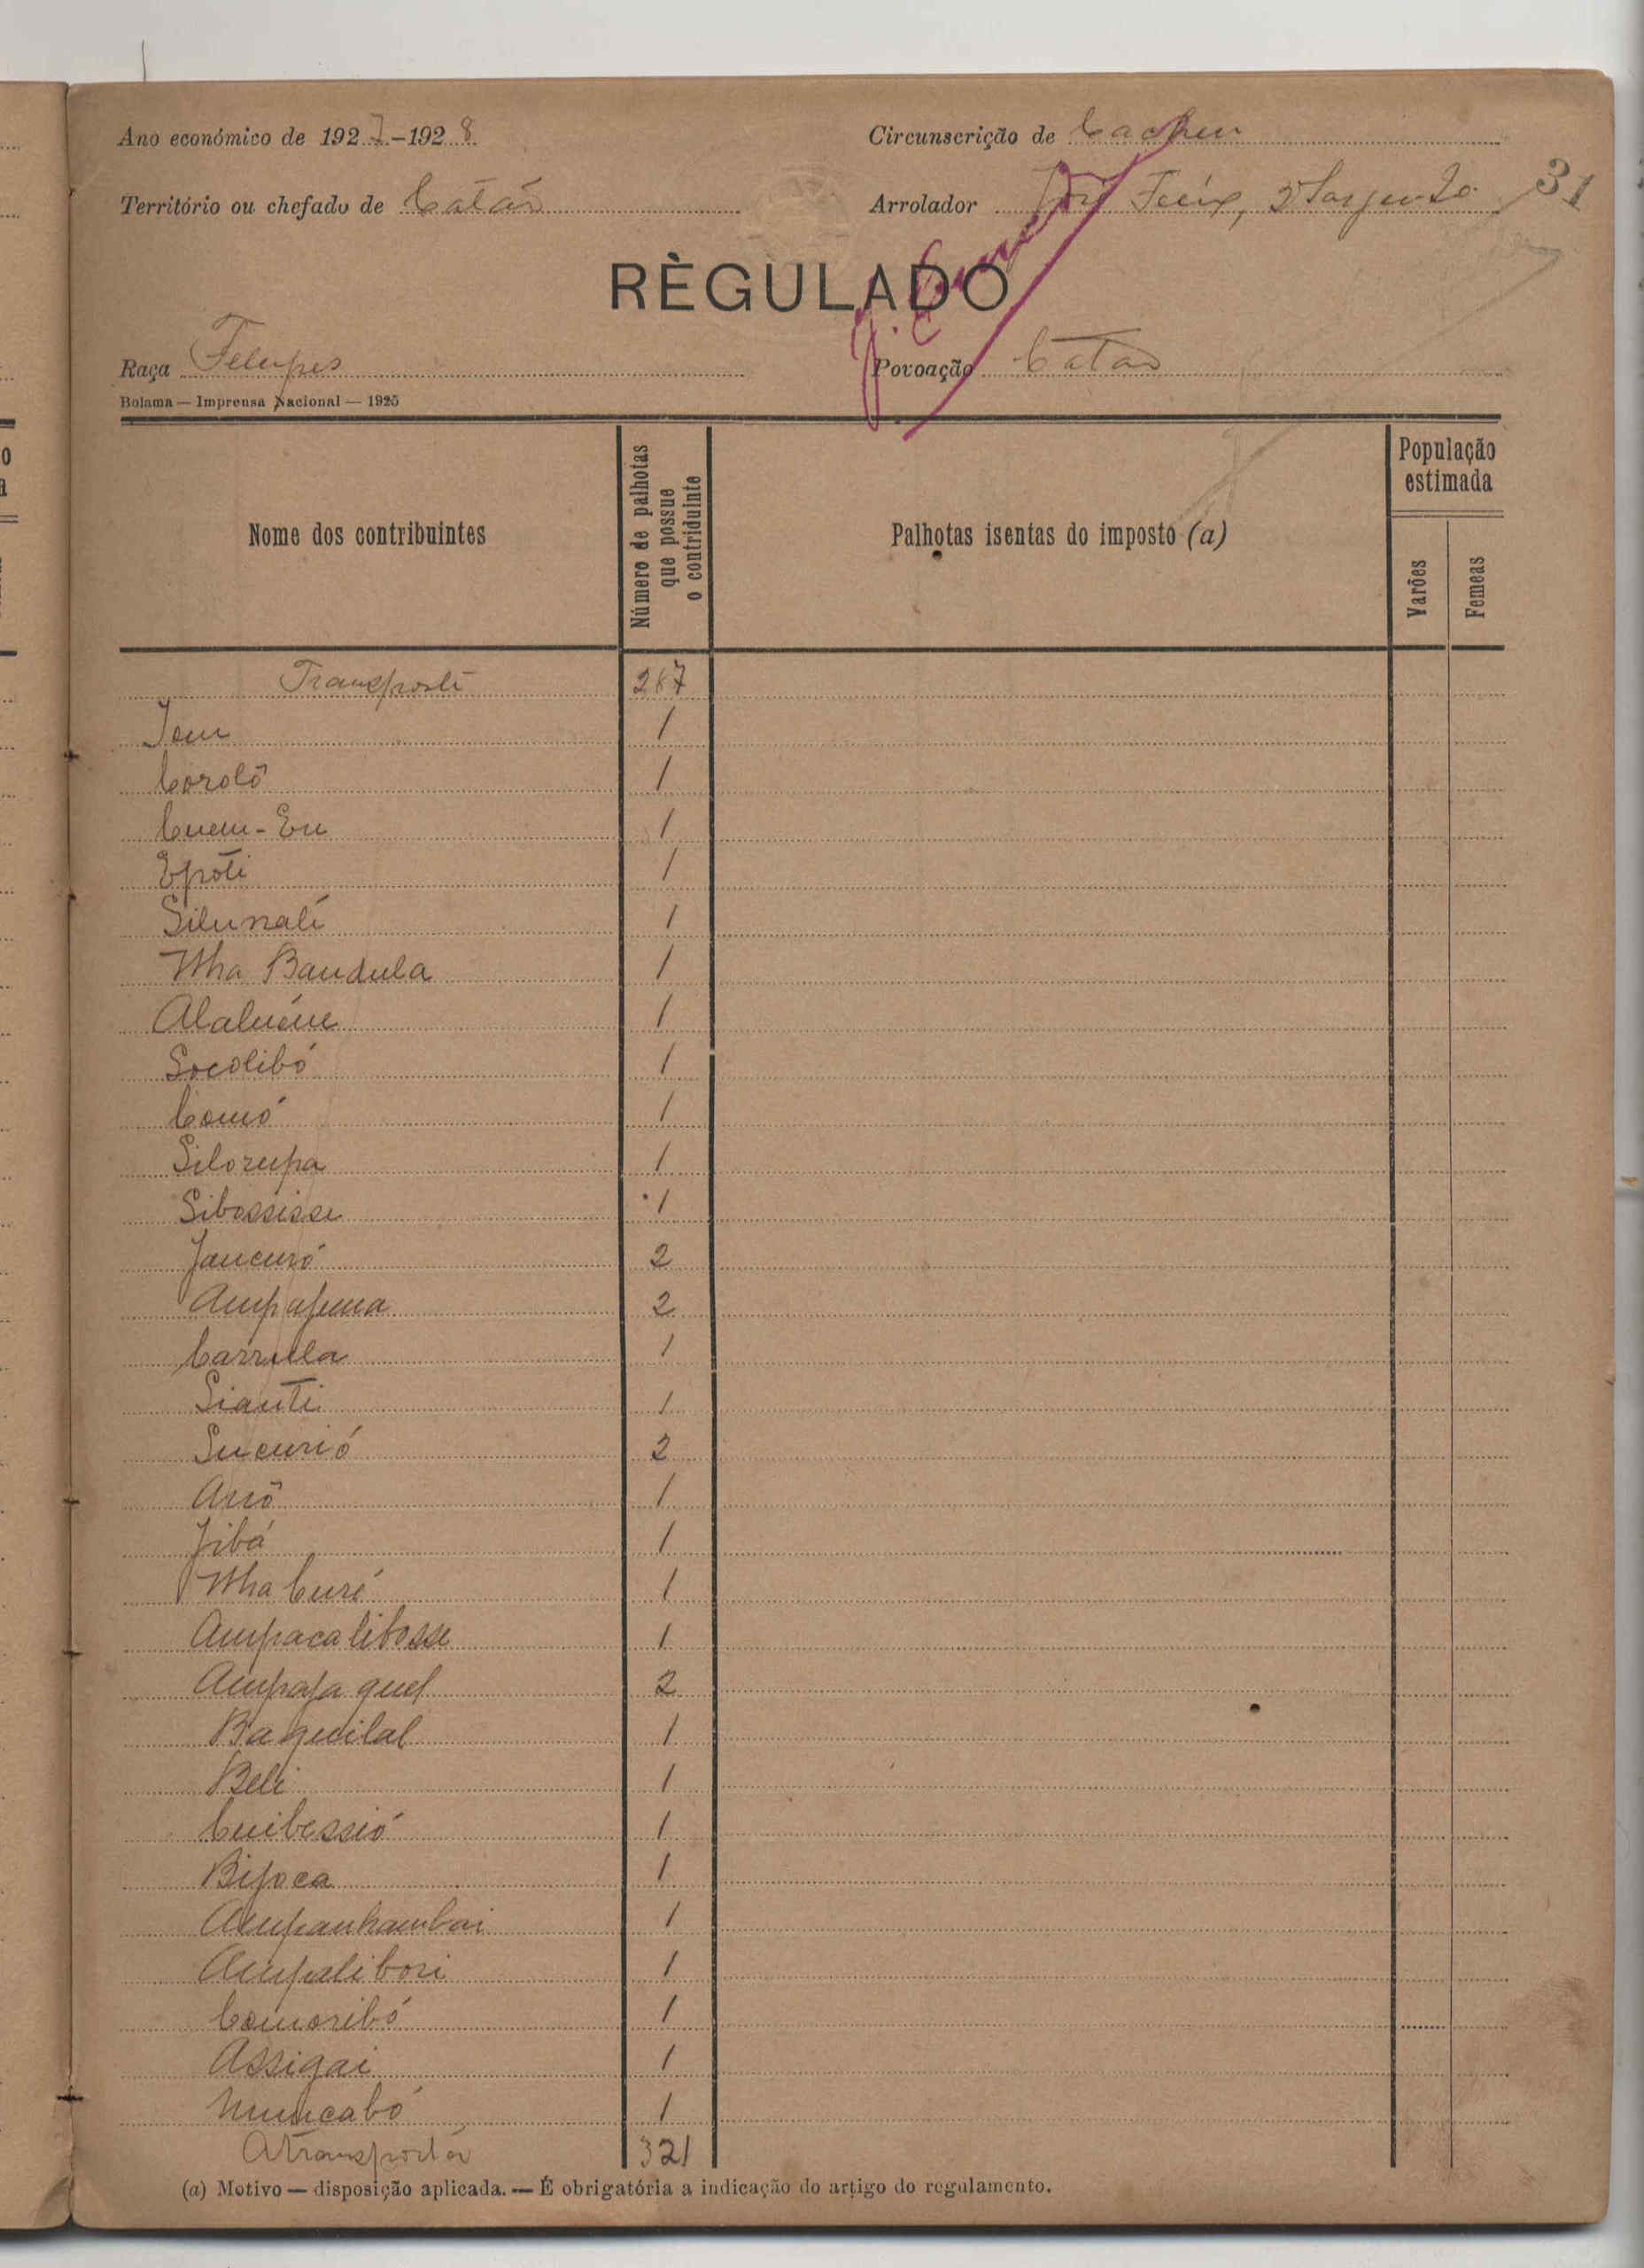 Ano económico de 1927-1928
Circunscrição de Cacheu
Território ou chefado de Catão
Arrolador José Feéx, 2º Sargento
31
RÈGULADO
Raça Felupes
Povoação Catão
Bolama — Imprensa Nacional — 1925
Nome dos contribuintes
Número de palhotas que possue o contriduinte
Palhotas isentas do imposto (a)
População estimada
Varões
Femeas
Transporte 287
Jem 1
Corolô 1
Cuem-Eu 1
Epóti 1
Silunali 1
Nha Bandula 1
Alaluéne 1
Socolibó 1
Comó 1
Silorupa 1
Sibossisse 1
Jancuró 2
Ampapuna 2
Carrulla 1
Sianti 1
Sucurió 2
Arrô 1
Jibá 1
Nha Curé 1
Ampacalibosse 1
Ampaja quel 2
Baquilal 1
Beli 1
Cuibessió 1
Bijoca 1
Ampanhambai 1
Ampalibori 1
Comoribó 1
Assigai 1
Numcabó 1
A transportar 321
(a) Motivo — disposição aplicada. — É obrigatória a indicação do artigo do regulamento.